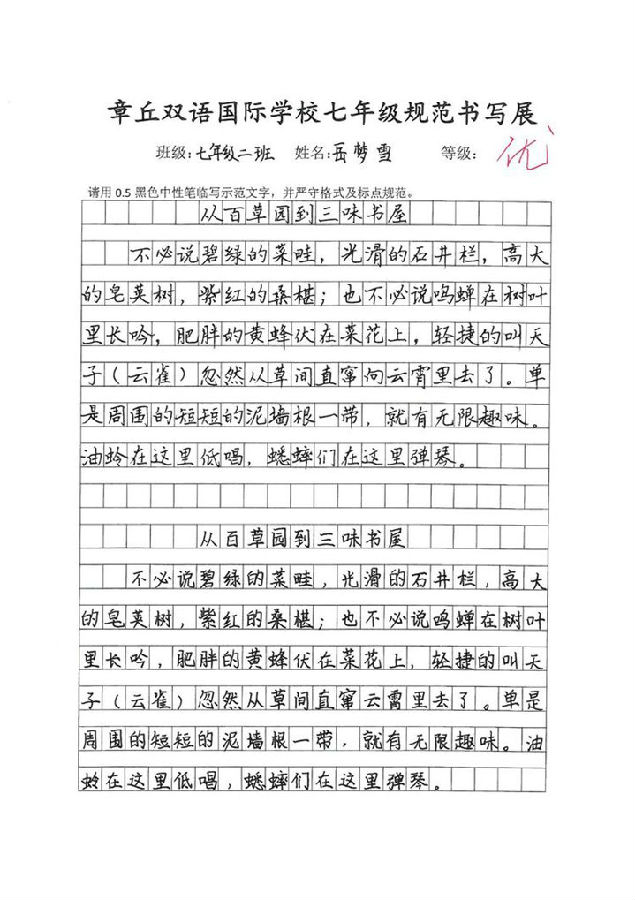 章丘双语国际学校七年级规范书写展
班级:七年级二班 姓名:岳梦雪 等级: 优
请用 0.5 黑色中性笔临写示范文字，并严守格式及标点规范。
从百草园到三味书屋
不必说碧绿的菜畦，光滑的石井栏，高大
的皂荚树，紫红的桑椹；也不必说鸣蝉在树叶
里长吟，肥胖的黄蜂伏在菜花上，轻捷的叫天
子（云雀）忽然从草间直窜向云霄里去了。单
是周围的短短的泥墙根一带，就有无限趣味。
油蛉在这里低唱，蟋蟀们在这里弹琴。
从百草园到三味书屋
不必说碧绿的菜畦，光滑的石井栏，高大
的皂荚树，紫红的桑椹；也不必说鸣蝉在树叶
里长吟，肥胖的黄蜂伏在菜花上，轻捷的叫天
子（云雀）忽然从草间直窜云霄里去了。单是
周围的短短的泥墙根一带，就有无限趣味。油
蛉在这里低唱，蟋蟀们在这里弹琴。